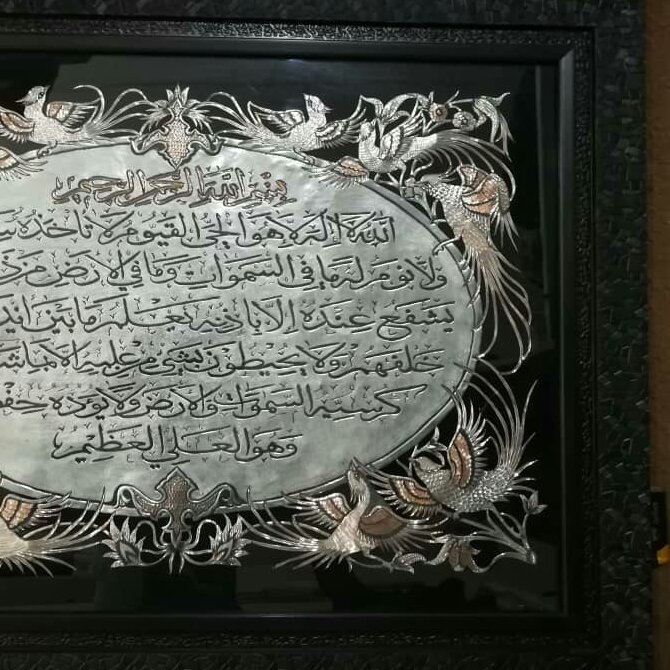 بسم الله الرحمن الرحیم
الله لا اله الا هو الحی القیوم لا تاخذه
ولا نوم له ما فی السموات وما فی الارض من
یشفع عنده الا باذنه یعلم ما بین
خلفهم ولا یحیطون بشیء من علمه الا بما
کرسیه السموات والارض ولا یوده
وهو العلی العظیم